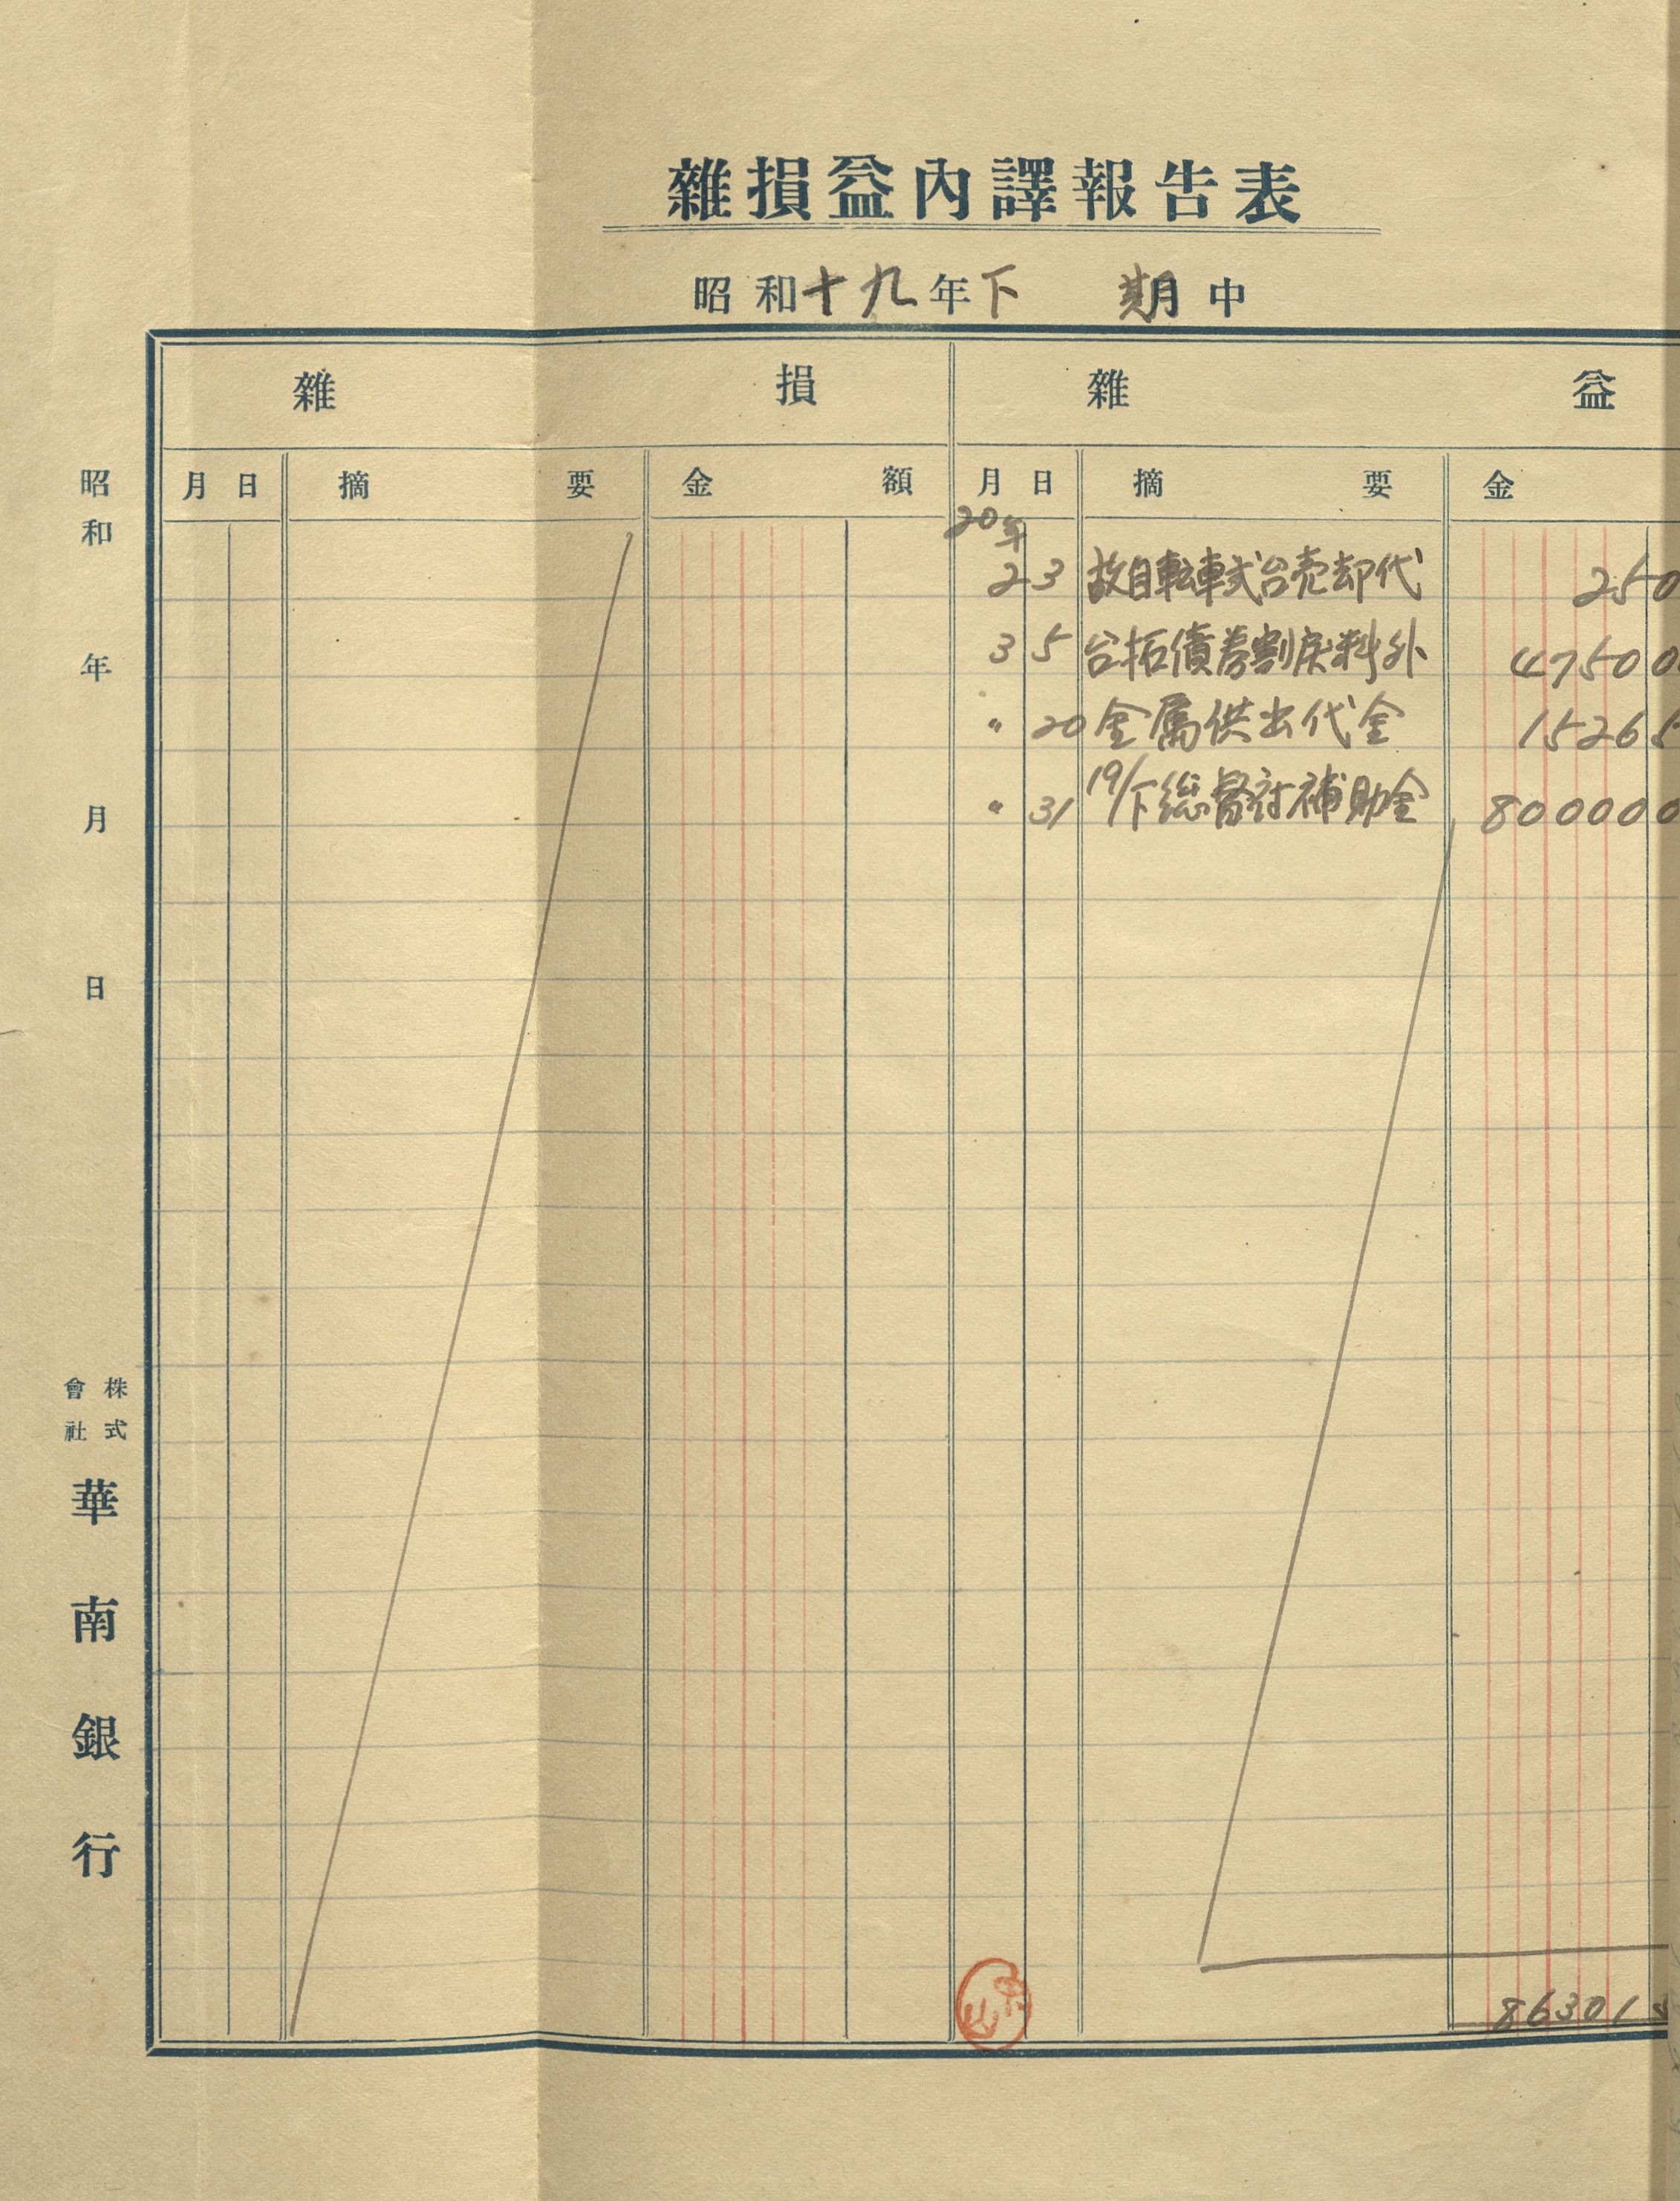 雜損益內譯報告表
昭和十九年下 期中
雜 損 雜 益
月 日 摘 要 金 額 月 日 摘 要 金
20年
2 3 故自転車弍台売却代 250
3 5 台拓債券割戻料外 47500
〃 20 金属供出代金 1526
〃 31 19/下総督府補助金 800000
86301
昭和 年 月 日
株式會社 華南銀行